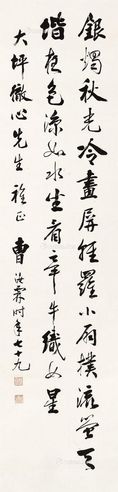 銀燭秋光冷畫屏輕羅小扇撲流螢天
階夜色涼如水坐看牽牛織女星
大坪徹心先生雅正 曹汝霖時年七十九